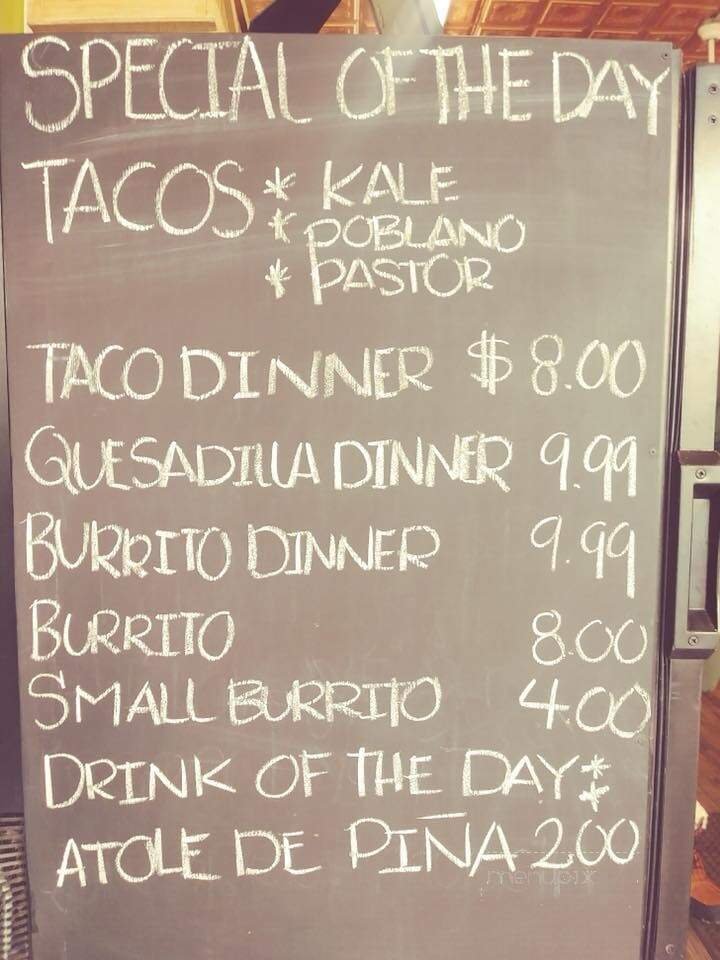 SPECIAL OF THE DAY
TACOS * KALE
* POBLANO
* PASTOR
TACO DINNER $ 8.00
QUESADILLA DINNER 9.99
BURRITO DINNER 9.99
BURRITO 8.00
SMALL BURRITO 4.00
DRINK OF THE DAY **
ATOLE DE PIÑA 2.00
menupix